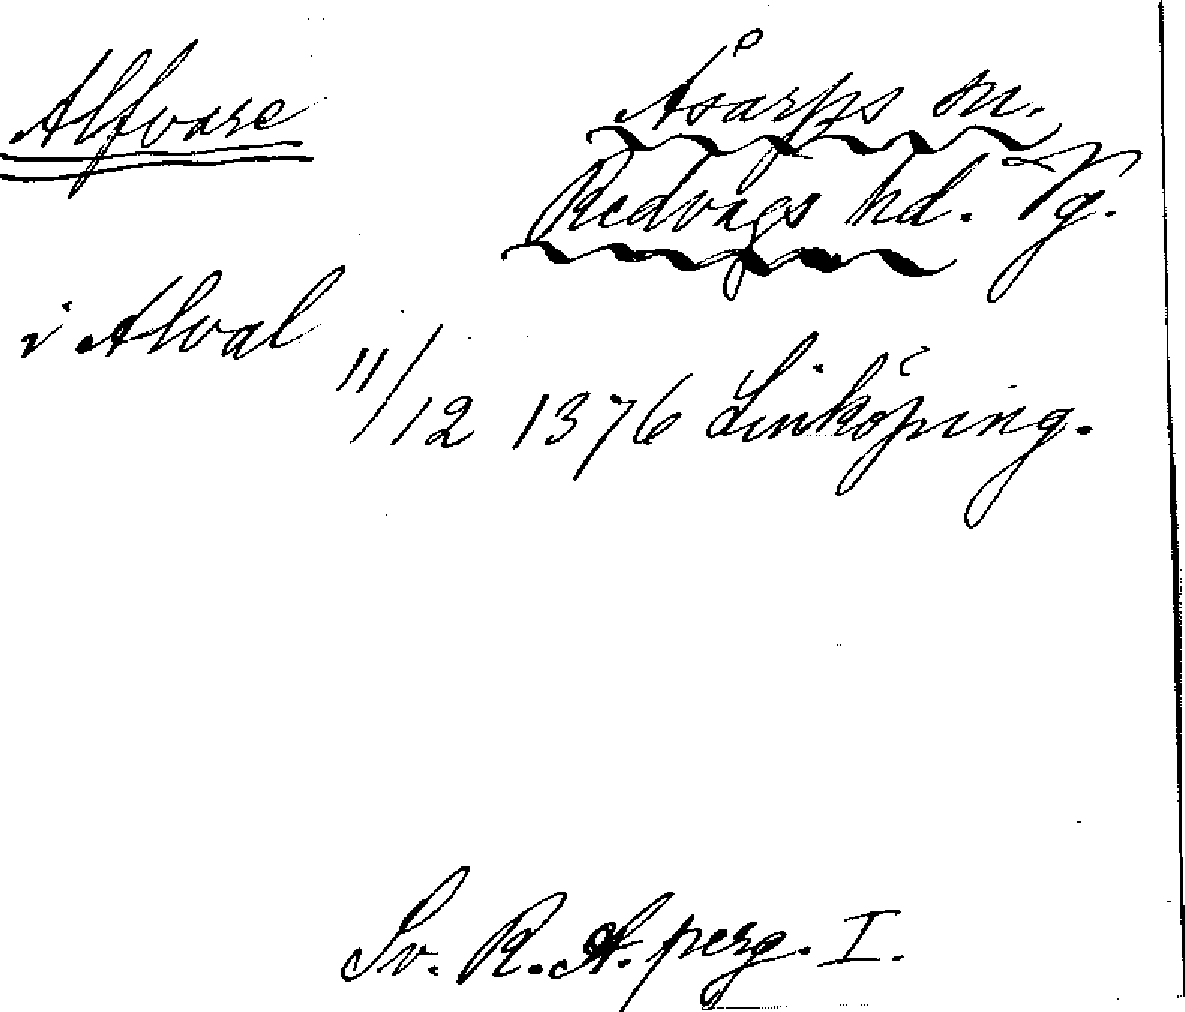 Alfvare
Åsarps sn.
Redvägs hd. Vg.
i Alval
11/12 1376 Linköping.
Sv. R. A. perg. I.